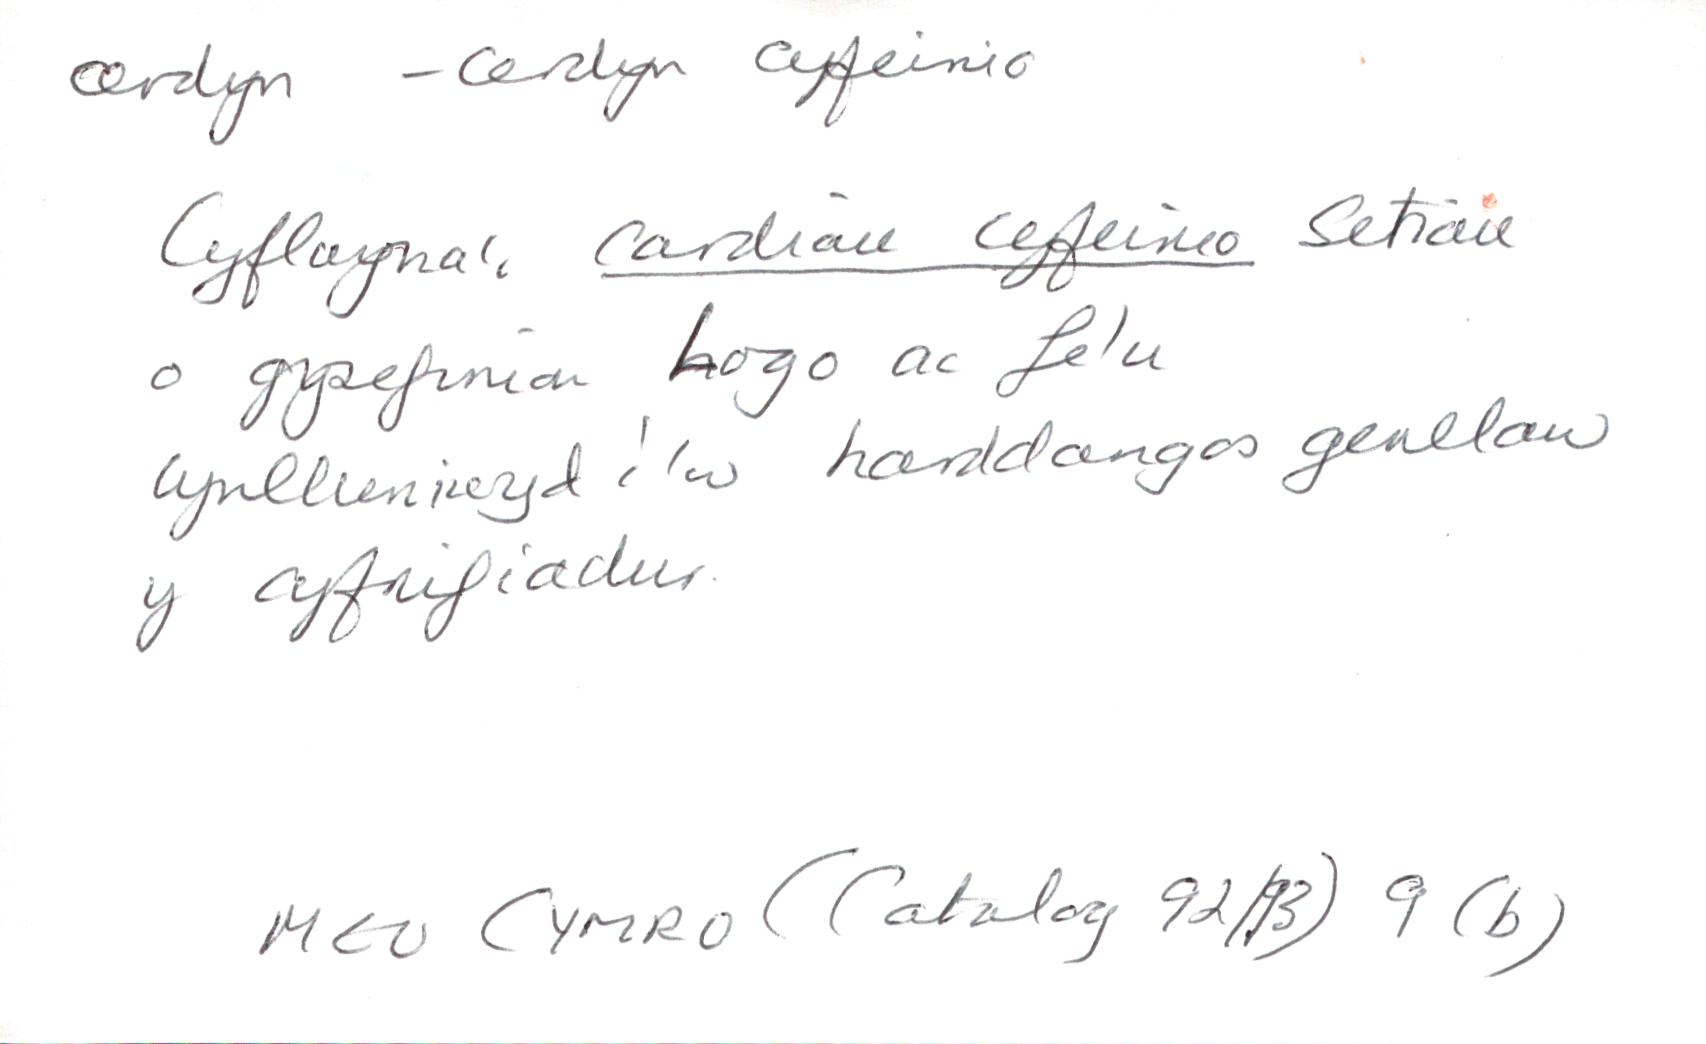 cerdyn - Cerdyn cyfeirio
Cyflwyna'r cardiau cyfeirio Setiau
o orchmynion Logo ac fe'u
cynlluniwyd i'w harddangos gerllaw
y cyfrifiadur.
MEU CYMRU (Catalog 92/93) 9 (b)